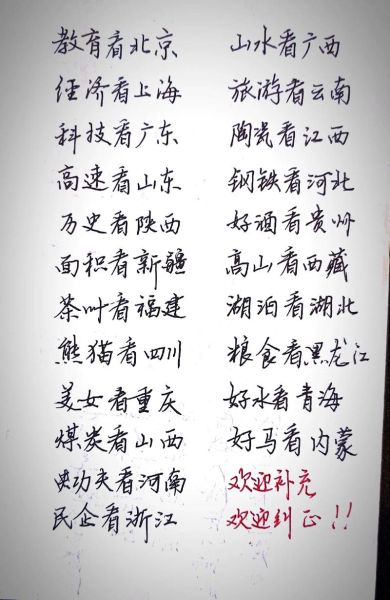 教育看北京 山水看广西
经济看上海 旅游看云南
科技看广东 陶瓷看江西
高速看山东 钢铁看河北
历史看陕西 好酒看贵州
面积看新疆 高山看西藏
茶叶看福建 湖泊看湖北
熊猫看四川 粮食看黑龙江
美女看重庆 好水看青海
煤炭看山西 好马看内蒙
功夫看河南 欢迎补充
民企看浙江 欢迎纠正!!